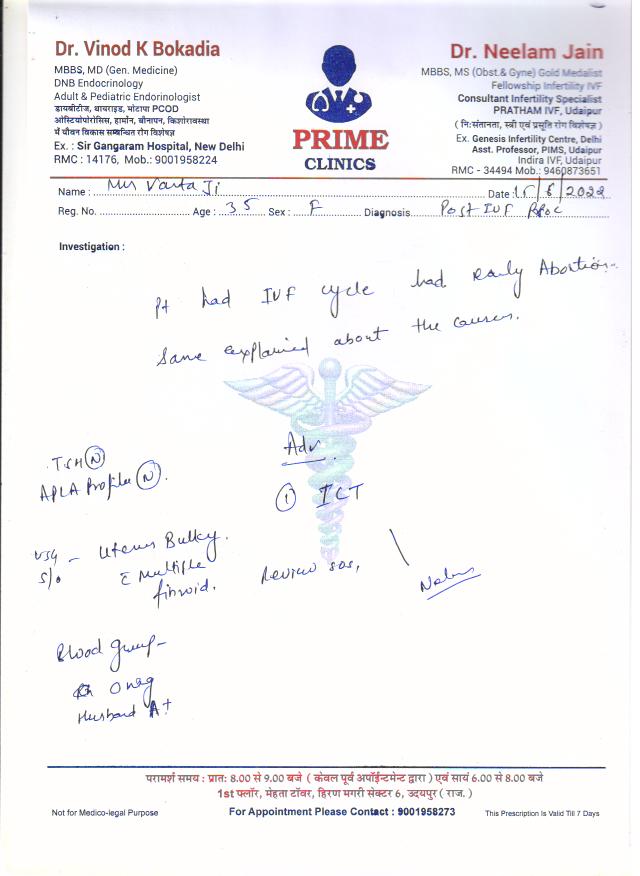 Dr. Vinod K Bokadia
MBBS, MD (Gen. Medicine)
DNB Endocrinology
Adult & Pediatric Endorinologist
डायबीटीज, थायराइड, मोटापा PCOD
ओस्टियोपोरोसिस, हार्मोन, बौनापन, किशोरावस्था
में यौवन विकास सम्बन्धित रोग विशेषज्ञ
Ex. : Sir Gangaram Hospital, New Delhi
RMC : 14176, Mob.: 9001958224
PRIME
CLINICS
Dr. Neelam Jain
MBBS, MS (Obst.& Gyne) Gold Medalist
Fellowship Infertility IVF
Consultant Infertility Specialist
PRATHAM IVF, Udaipur
( नि:संतानता, स्त्री एवं प्रसूति रोग विशेषज्ञ )
Ex. Genesis Infertility Centre, Delhi
Asst. Professor, PIMS, Udaipur
Indira IVF, Udaipur
RMC - 34494 Mob.: 9460873651
Name : Mrs Vanta Ji Date : 15/6/2022
Reg. No. Age : 35 Sex : F Diagnosis Post IVF RPOC
Investigation :
Pt had IVF cycle had Early Abortion.
Same explained about the causes.
TSH (N)
APLA Profile (N).
Adv.
① ICT
USG - Uterus Bulky.
S/o c Multiple
fibroid.
Review sos,
Blood group -
O neg
Husband A+
परामर्श समय : प्रात: 8.00 से 9.00 बजे ( केवल पूर्व अपॉईन्टमेन्ट द्वारा ) एवं सायं 6.00 से 8.00 बजे
1st फ्लॉर, मेहता टॉवर, हिरण मगरी सेक्टर 6, उदयपुर ( राज. )
Not for Medico-legal Purpose For Appointment Please Contact : 9001958273 This Prescription Is Valid Till 7 Days